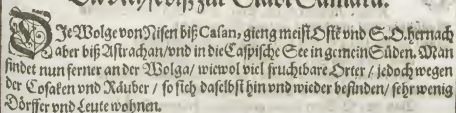 biß zur Stadt Samara.
DJe Wolge von Nisen biß Casan, gieng meist Ost vnd S. O. hernach
aber biß Astrachan/vnd in die Caspische See in gemein Süden. Man
findet nun ferner an der Wolga/ wiewol viel fruchtbare Orter/ jedoch wegen
der Cosaken vnd Räuber / so sich daselbst hin vnd wieder befinden/ sehr wenig
Dörffer vnd Leute wohnen.